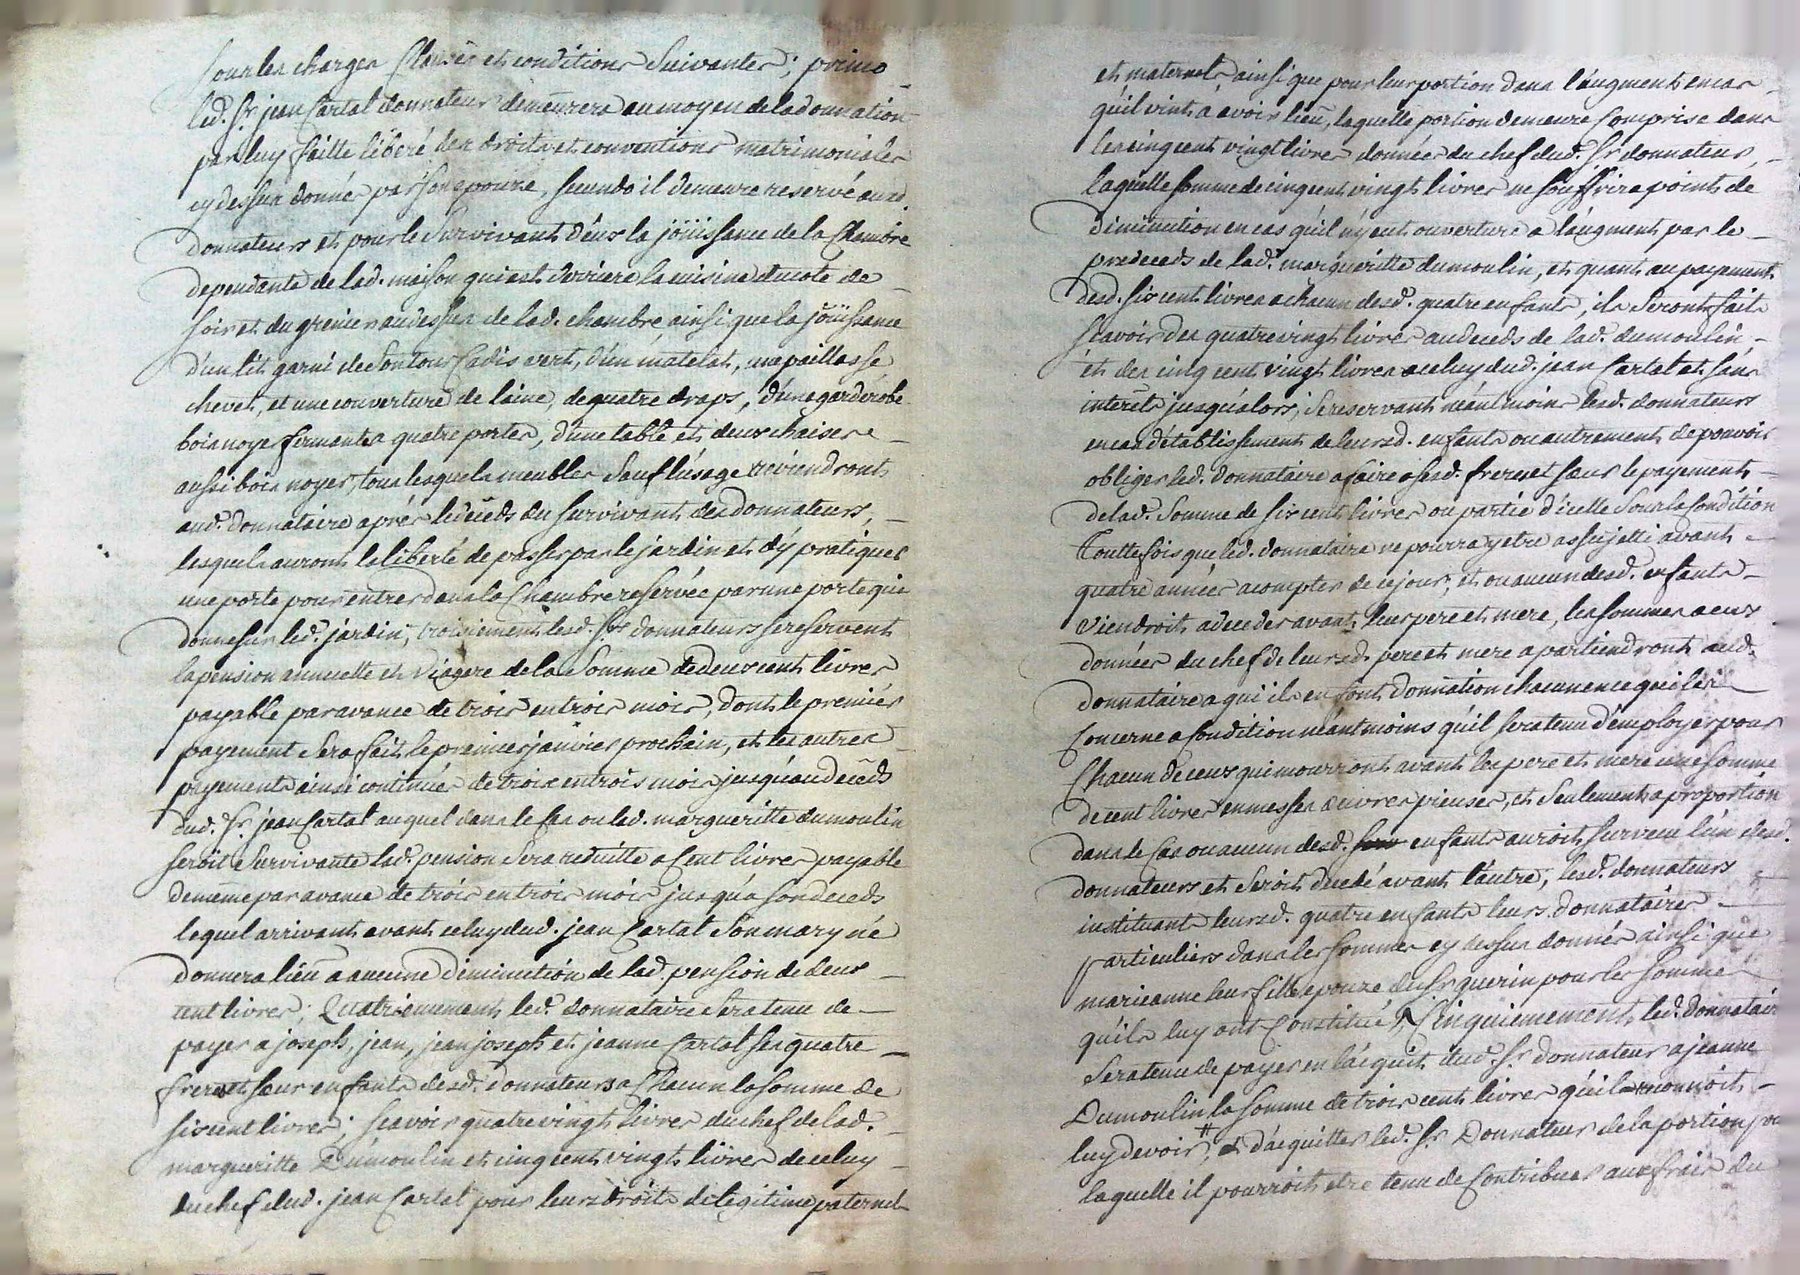 sous les charges Clauses et conditions Suivantes; primo
led. Sr. jean Cartal donnateur demeurera au moyen de la donnation
par luy faitte libéré des droits et conventions matrimoniales
cy dessus donnés par son epouze, secundo il demeure reservé auxd.
donnateurs et pour le Survivant d'eux la joüissance de la Chambre
dependante de lad. maison qui est derriere la cuisine du coté de
soir et du grenier au dessus de lad. chambre ainsi que la joüissance
d'un lit garni de son tour Cadis vert, d'un matelat, une paillasse,
chevet, et une couverture de laine, de quatre draps, d'une garderobe
bois noyer fermante a quatre portes, d'une table et deux chaises
aussi bois noyer, tous lesquels meubles Sauf l'usage reviendront
aud. donnataire aprés le deceds du survivant des donnateurs,
lesquels auront la liberté de passer par le jardin et d'y pratiquer
une porte pour entrer dans la Chambre reservée par une porte qui
donne sur led. jardin; troisiement lesd. Srs donnateurs se reservent
la pension annuelle et viagere de la Somme de deux cent livres
payable par avance de trois en trois mois, dont le premier
payement Sera fait le premier janvier prochain, et les autres
payements ainsi continués de trois en trois mois jusqu'au deceds
dud. Sr. jean Cartal auquel dans le Cas ou lad. margueritte dumoulin
seroit Survivante lad. pension Sera reduitte a Cent livres payable
de meme par avance de trois en trois mois jusqu'a son deceds
lequel arrivant avant celuy dud. jean Cartal Son mary ne
donnera lieu a aucune diminution de lad. pension de deux
cent livres; Quatriemement led. donnataire Sera tenu de
payer a joseph, jean, jean joseph et jeanne Cartal ses quatre
freres et soeur enfants desd. donnateurs a Chacun la somme de
six cent livres; scavoir quatre vingt livres du chef de lad.
margueritte Dumoulin et cinq cent vingt livres de celuy
du chef dud. jean Cartal pour leurs droits de legitime paternels
et maternels ainsi que pour leur portion dans l'augment en cas
qu'il vint á avoir lieu, laquelle portion demeure Comprise dans
les cinq cent vingt livres données du chef dud. Sr. donnateur,
laquelle somme de cinq cent vingt livres ne souffrira points de
diminution en cas qu'il n'y eut ouverture a l'augment par le
predeceds de lad. margueritte dumoulin, et quant au payement
desd. six cent livres a chacun desd. quatre enfants, ils Seront faits
scavoir des quatre vingt livres au deceds de lad. dumoulin
et des cinq cent vingt livres a celuy dud. jean Cartal et sans
interets jusqu'alors, Se reservant néantmoins lesd. donnateurs
en cas d'établissement de leursd. enfants ou autrement de pouvoir
obliger led. donnataire a faire a sesd. freres et soeur le payement
de lad. Somme de six cent livres ou partie d'icelle Sous la Condition
Touttefois que led. donnataire ne pourra y etre assujetti avant
quatre années a compter de ce jour; et ou aucun desd. enfants
viendroit a deceder avant leurs pere et mere, les sommes a eux
données du chef de leursd. pere et mere apartiendront aud.
donnataire a qui ils en font donnation chacun en ce qui les
Concerne a Condition néantmoins qu'il Sera tenu d'employer pour
Chacun de ceux qui mourront avant les pere et mere une Somme
de cent livres en messes oeuvres pieuses, et Seulement a proportion
dans le Cas ou aucun desd. enfants auroit Survecu l'un desd.
donnateurs et Seroit decedé avant l'autre, lesd. donnateurs
instituant leursd. quatre enfants leurs donnataires
particuliers dans les sommes cy dessus donnés ainsi que
marieanne leur fille epouze du Sr guerin pour les sommes
qu'ils luy ont Constitué; Cinquiemement led. donnataire
Sera tenu de payer en l'acquit dud. Sr. donnateur a jeanne
Dumoulin la somme de trois cent livres qu'il reconnoit
luy devoir # et d'acquitter led. Sr. Donnateur de la portion pour
laquelle il pourroit etre tenu de Contribuer aux frais du